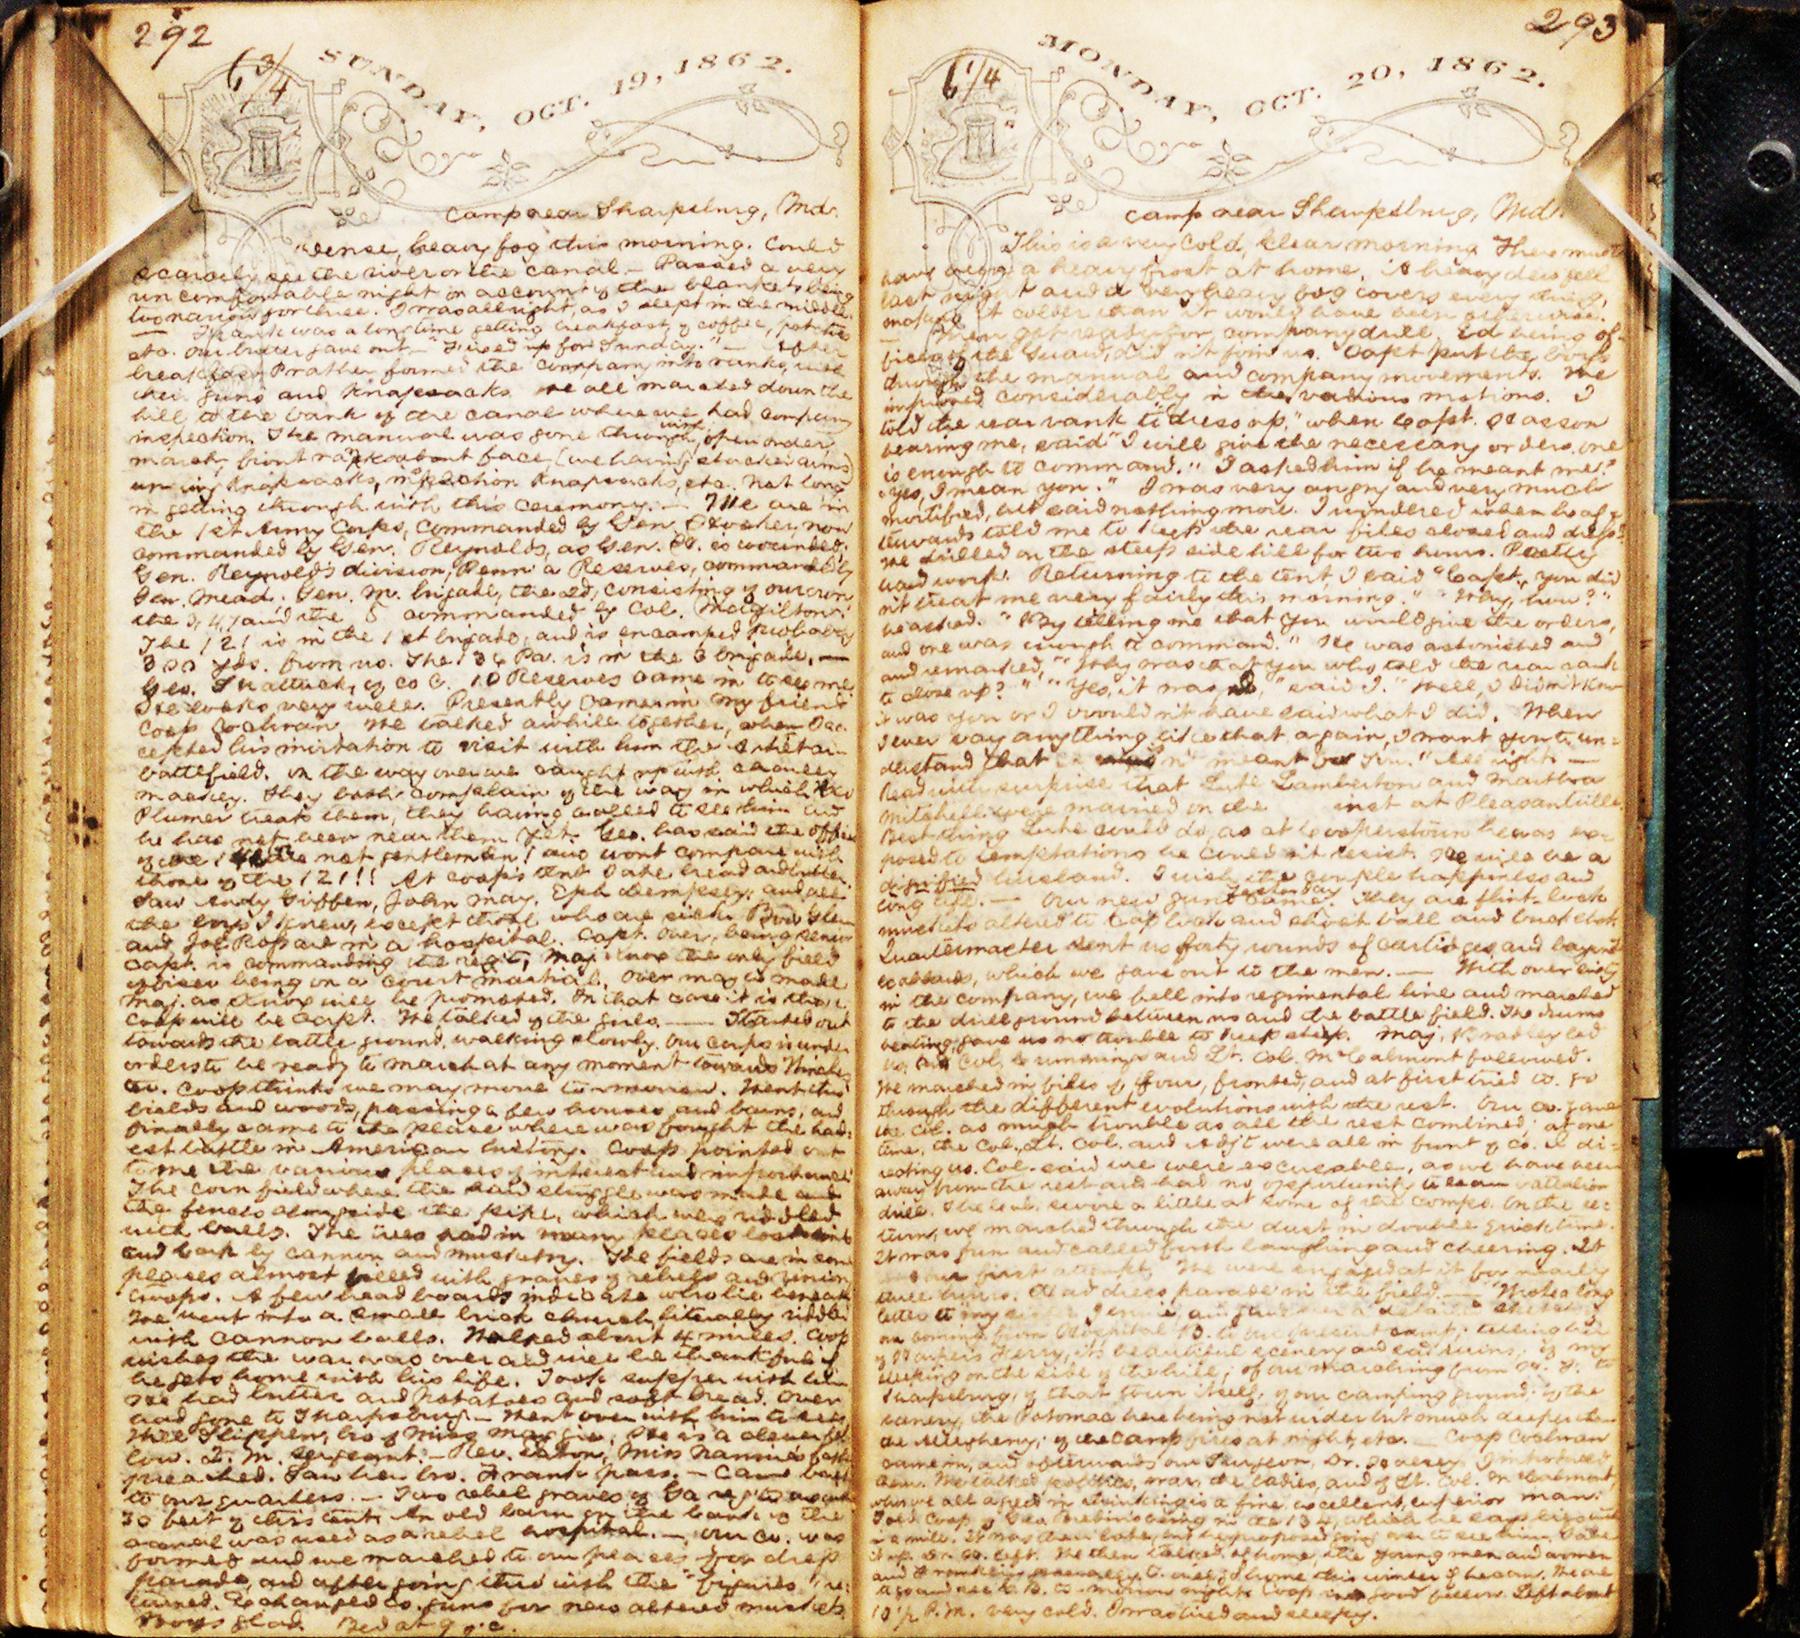 292
6 3/4
SUNDAY, OCT. 19, 1862.
Camp near Sharpsburg, Md.
Dense, heavy fog this morning. Could
scarcely see the river or the canal. — Passed a very
uncomfortable night on account of the blankets being
too narrow for three. I was all right, as I slept in the middle.
— Frank was a long time getting breakfast of coffee, potatoes
etc. Our butter gave out — "Fixed up for Sunday." — After
breakfast Prather formed the company into ranks, with
their guns and knapsacks. We all marched down the
hill to the bank of the canal where we had company
inspection. The manual was gone through with, open order,
march, front rank about face (we having stacked arms)
unsling knapsacks, inspection knapsacks, etc. Not long
in getting through with this ceremony. — We are in
the 1st Army Corps, commanded by Gen. Hooker, now
commanded by Gen. Reynolds, as Gen. H. is wounded.
Gen. Reynold's division, Penn'a Reserves, commanded by
Gen. Mead. Gen. M. brigade, the 2d, consisting of our own
the 3, 4, 7 and the 8 commanded by Col. Magilton.
The 121 is in the 1st brigade, and is encamped probably
300 yds. from us. The 136 Pa. is in the 3 brigade. —
Geo. Shattuck, of Co C. 10 Reserves came in to see me.
He looks very well. Presently came in my friend
Coop Coolman. We talked awhile together, when I ac-
cepted his invitation to visit with him the Antietam
battlefield. On the way over we caught up with
They both complain of the way in which
Plumer treats them, they having called to see him and
he has not been near them yet. Geo. has said the officers
of the are not gentlemen! and wont compare with
those of the 121!!! At Coop's tent I ate bread and butter.
Saw Andy Giffen, John May, Eph Dempsey, and all
the boys I knew, except those who are sick.
and Joe Ross are in a hospital. Capt. Over, being senior
Capt. is commanding the reg't, Maj. Knox the only field
officer being on a court martial. Over may be made
Maj. as Knox will be promoted. In that case it is
Coop will be Capt. We talked of the girls. — Started out
towards the battle ground, walking slowly. Our corps is under
orders to be ready to march at any moment towards
Coop thinks we may move to-morrow. Went thro'
fields and woods, passing a few houses and barns, and
finally came to the place where was fought the hard-
est battle in American history. Coop pointed out
to me the various places of interest and importance.
The corn field where the hard struggle was made and
the fences alongside the pike, which were riddled
with balls. The trees had in many places lost limbs
and bark by cannon and musketry. The fields are in some
places almost filled with graves of rebels and Union
troops. A few head boards indicate who lie beneath
We went into a small brick church, literally riddled
with cannon balls. Walked about 4 miles. Coop
wishes the war was over and will be thankful if
he gets home with his life. Took supper with him
We had butter and potatoes and soft bread. Over
had gone to Sharpsburg. — Went over with him to see
Flippen, bro of Miss Maggie. He is a clever fel-
low. Q. M. Sergeant. — Rev. Eaton, Miss Nannie's father
preached. Saw her bro. Frank pass. — Came back
to our quarters. — Two rebel graves of Ga reg'ts about
30 feet of this tent. An old barn on the bank of the
canal was used as a rebel hospital. — Our Co. was
formed and we marched to our places for dress
parade, and after going thro with the "figures" re-
turned. Exchanged Co. guns for new altered muskets
Boys glad. Bed at 9 o'c.
293
6 1/4
MONDAY, OCT. 20, 1862.
Camp near Sharpsburg, Md.
This is a very cold, clear morning. There must
have been a heavy frost at home. A heavy dew fell
last night and a very heavy fog covers every thing,
making it colder than it would have been otherwise.
— Then got ready for company drill. Ed being of-
ficer of the Guard, did n't join us. Capt put the boys
through the manual and company movements. We
improved considerably in the various motions. I
told the rear rank to "dress up," when Capt. Hasson
hearing me, said "I will give the necessary orders, one
is enough to command." I asked him if he meant me?
"Yes, I mean you." I was very angry and very much
mortified, but said nothing more. I wondered when he af-
terwards told me to keep the rear files closed and dress'd.
We drilled on the steep side hill for two hours. Pretty
hard work. Returning to the tent I said "Capt., you did
n't treat me very fairly this morning." "Why, how?"
he asked. "By telling me that you would give the orders,
and one was enough to command." He was astonished and
and remarked, "Why was it you who told the rear rank
to close up?" "Yes, it was," said I. "Well, I didn't know
it was you or I would n't have said what I did. When
I ever say anything like that again, I want you to un-
derstand that n't meant for you." All right —
Read with surprise that Lute Lamberton and Martha
Mitchell were married on the inst at Pleasantville
Best thing Lute could do, as at Cooperstown he was ex-
posed to temptations he could n't resist. He will be a
dignified husband. I wish the couple happiness and
long life. — Our new guns came yesterday. They are flint-lock
muskets altered to cap lock and shoot ball and buckshot.
Quartermaster sent us forty rounds of cartridges, and bayonet
scabbards, which we gave out to the men. — With over sixty
in the company, we fell into regimental line and marched
to the drill ground between us and the battle field. The drums
beating, gave us no trouble to keep step. Maj. Bradley led
us, and Col. Cummings and Lt. Col. McCalmont followed.
We marched in files of four, fronted, and at first tried to go
through the different evolutions with the rest. Our co. gave
the Col. as much trouble as all the rest combined; at one
time, the Col., Lt. Col. and Adj't were all in front of Co. di-
recting us. Col. said we were excusable, as we have been
away from the rest and had no opportunity to learn battalion
drill. The Col. swore a little at some of the comps. On the re-
turn, we marched through the dust in double quick time.
It was fun and called forth laughing and cheering. It
was our first attempt. We were engaged at it for nearly
three hours. Had dress parade in the field. — Wrote a long
letter to my sister Jennie
on coming from Hospital B. to our present camp; telling her
of Harper's Ferry, its beautiful scenery and sad ruins; of my
sleeping on the side of the hill; of our marching from H. F. to
Sharpsburg; of that town itself; of our camping ground; of the
scenery, the Potomac here being not wider but much deeper than
the Allegheny; of the camp fires at night, etc. — Coop Coolman
came in, and afterwards our Surgeon, Dr. I introduced
them. We talked politics, war, the ladies, and of Lt. Col. McCalmont,
whom we all agreed in thinking is a fine, excellent, superior man.
Told Coop of Geo. being in the 134, which he says lies within
a mile. It was then late, but he proposed going over to see him.
We then talked of home, the young men and women
10 1/2 P.M. very cold. I was tired and sleepy.